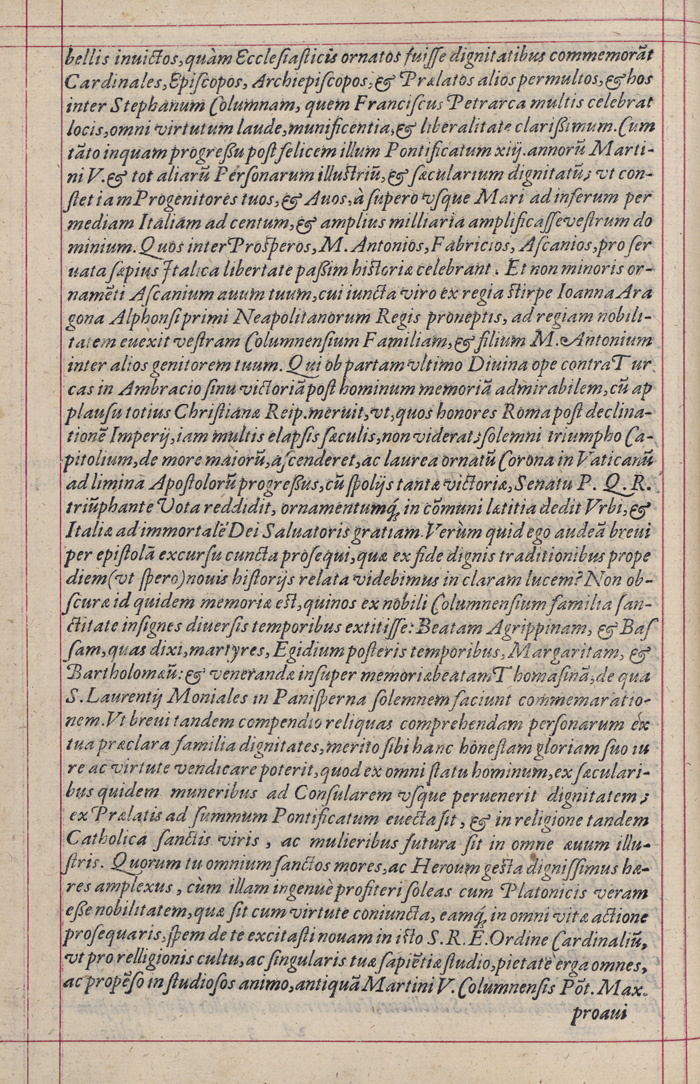 bellis inuictos, quàm Ecclesiasticis ornatos fuisse dignitatibus commemorãt
Cardinales, Episcopos, Archiepiscopos, & Prælatos alios permultos, & hos
inter Stephanum Columnam, quem Franciscus Petrarca multis celebrat
locis, omni virtutum laude, munificentia, & liberalitate clarißimum. Cum
tãto inquam progreßu post felicem illum Pontificatum xiij. annorũ Marti-
ni V. & tot aliarũ Personarum illustriũ, & sæcularium dignitatũs vt con-
stet iam Progenitores tuos, & Auos, à supero vsque Mari ad inferum per
mediam Italiam ad centum, & amplius milliaria amplificasse vestrum do
minium. Quos inter Prosperos, M. Antonios, Fabricios, Ascanios, pro ser
uata sæpius Italica libertate paßim historiæ celebrant. Et non minoris or-
namẽti Ascanium auum tuum, cui iuncta viro ex regia stirpe Ioanna Ara
gona Alphonsi primi Neapolitanorum Regis proneptis, ad regiam nobili-
tatem euexit vestram Columnensium Familiam, & filium M. Antonium
inter alios genitorem tuum. Qui ob partam vltimo Diuina ope contra Tur
cas in Ambracio sinu victoriã post hominum memoriã admirabilem, cũ ap
plausu totius Christianæ Reip. meruit, vt, quos honores Roma post declina-
tionẽ Imperij, iam multis elapsis sæculis, non viderat; solemni triumpho Ca-
pitolium, de more maiorũ, ascenderet, ac laurea ornatũ Corona in Vaticanũ
ad limina Apostolorũ progreßus, cũ spolijs tantæ victoriæ, Senatu P. Q. R.
triũphante Vota reddidit, ornamentumq́, in cõmuni lætitia dedit Vrbi, &
Italiæ ad immortalẽ Dei Saluatoris gratiam. Verùm quid ego audeã breui
per epistolã excursu cuncta prosequi, quæ ex fide dignis traditionibus prope
diem (vt spero) nouis historijs relata videbimus in claram lucem? Non ob-
scuræ id quidem memoriæ est, quinos ex nobili Columnensium familia san-
ctitate insignes diuersis temporibus extitisse: Beatam Agrippinam, & Bas
sam, quas dixi, martyres, Egidium posteris temporibus, Margaritam, &
Bartholomæũ: & venerandæ insuper memoriæ beatam Thomasinã, de qua
S. Laurentij Moniales in Panisperna solemnem faciunt commemaratio-
nem. Vt breui tandem compendio reliquas comprehendam personarum ex
tua præclara familia dignitates, merito sibi hanc honestam gloriam suo iu
re ac virtute vendicare poterit, quod ex omni statu hominum, ex sæculari-
bus quidem muneribus ad Consularem vsque peruenerit dignitatem;
ex Prælatis ad summum Pontificatum euecta sit, & in religione tandem
Catholica sanctis viris, ac mulieribus futura sit in omne æuum illu-
stris. Quorum tu omnium sanctos mores, ac Heroum gesta dignissimus hæ-
res amplexus, cùm illam ingenuè profiteri soleas cum Platonicis veram
eße nobilitatem, quæ sit cum virtute coniuncta, eamq́, in omni vitæ actione
prosequaris, spem de te excitasti nouam in isto S. R. E. Ordine Cardinaliũ,
vt pro relligionis cultu, ac singularis tuæ sapiẽtiæ studio, pietate erga omnes,
ac propẽso in studiosos animo, antiquã Martini V. Columnensis Põt. Max.
proaui